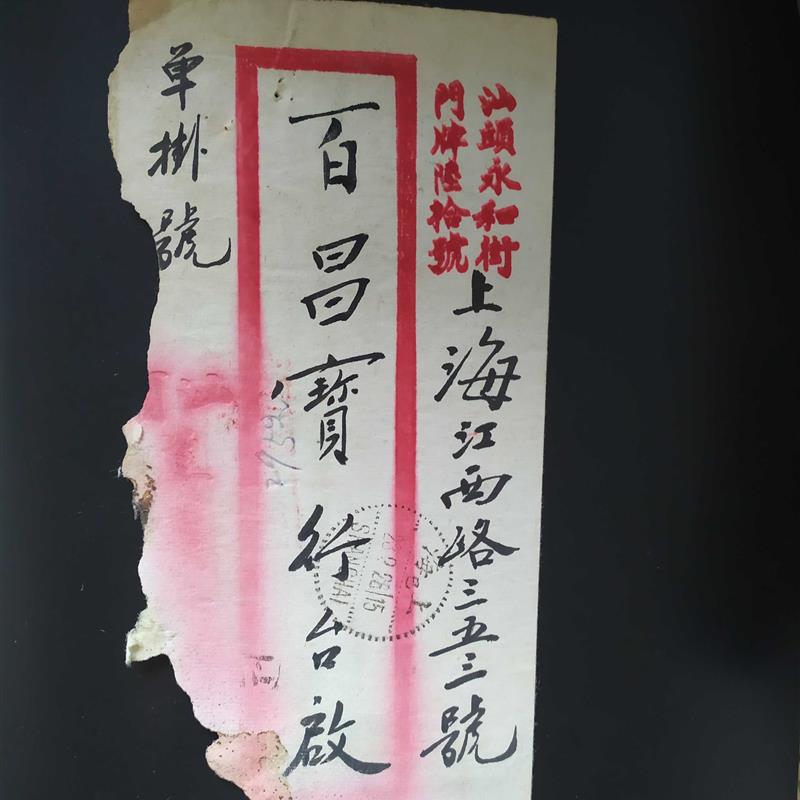 汕頭永和街
門牌陸拾號
上海江西路三五三號
百昌寶行台啟
单掛號
SHANGHAI